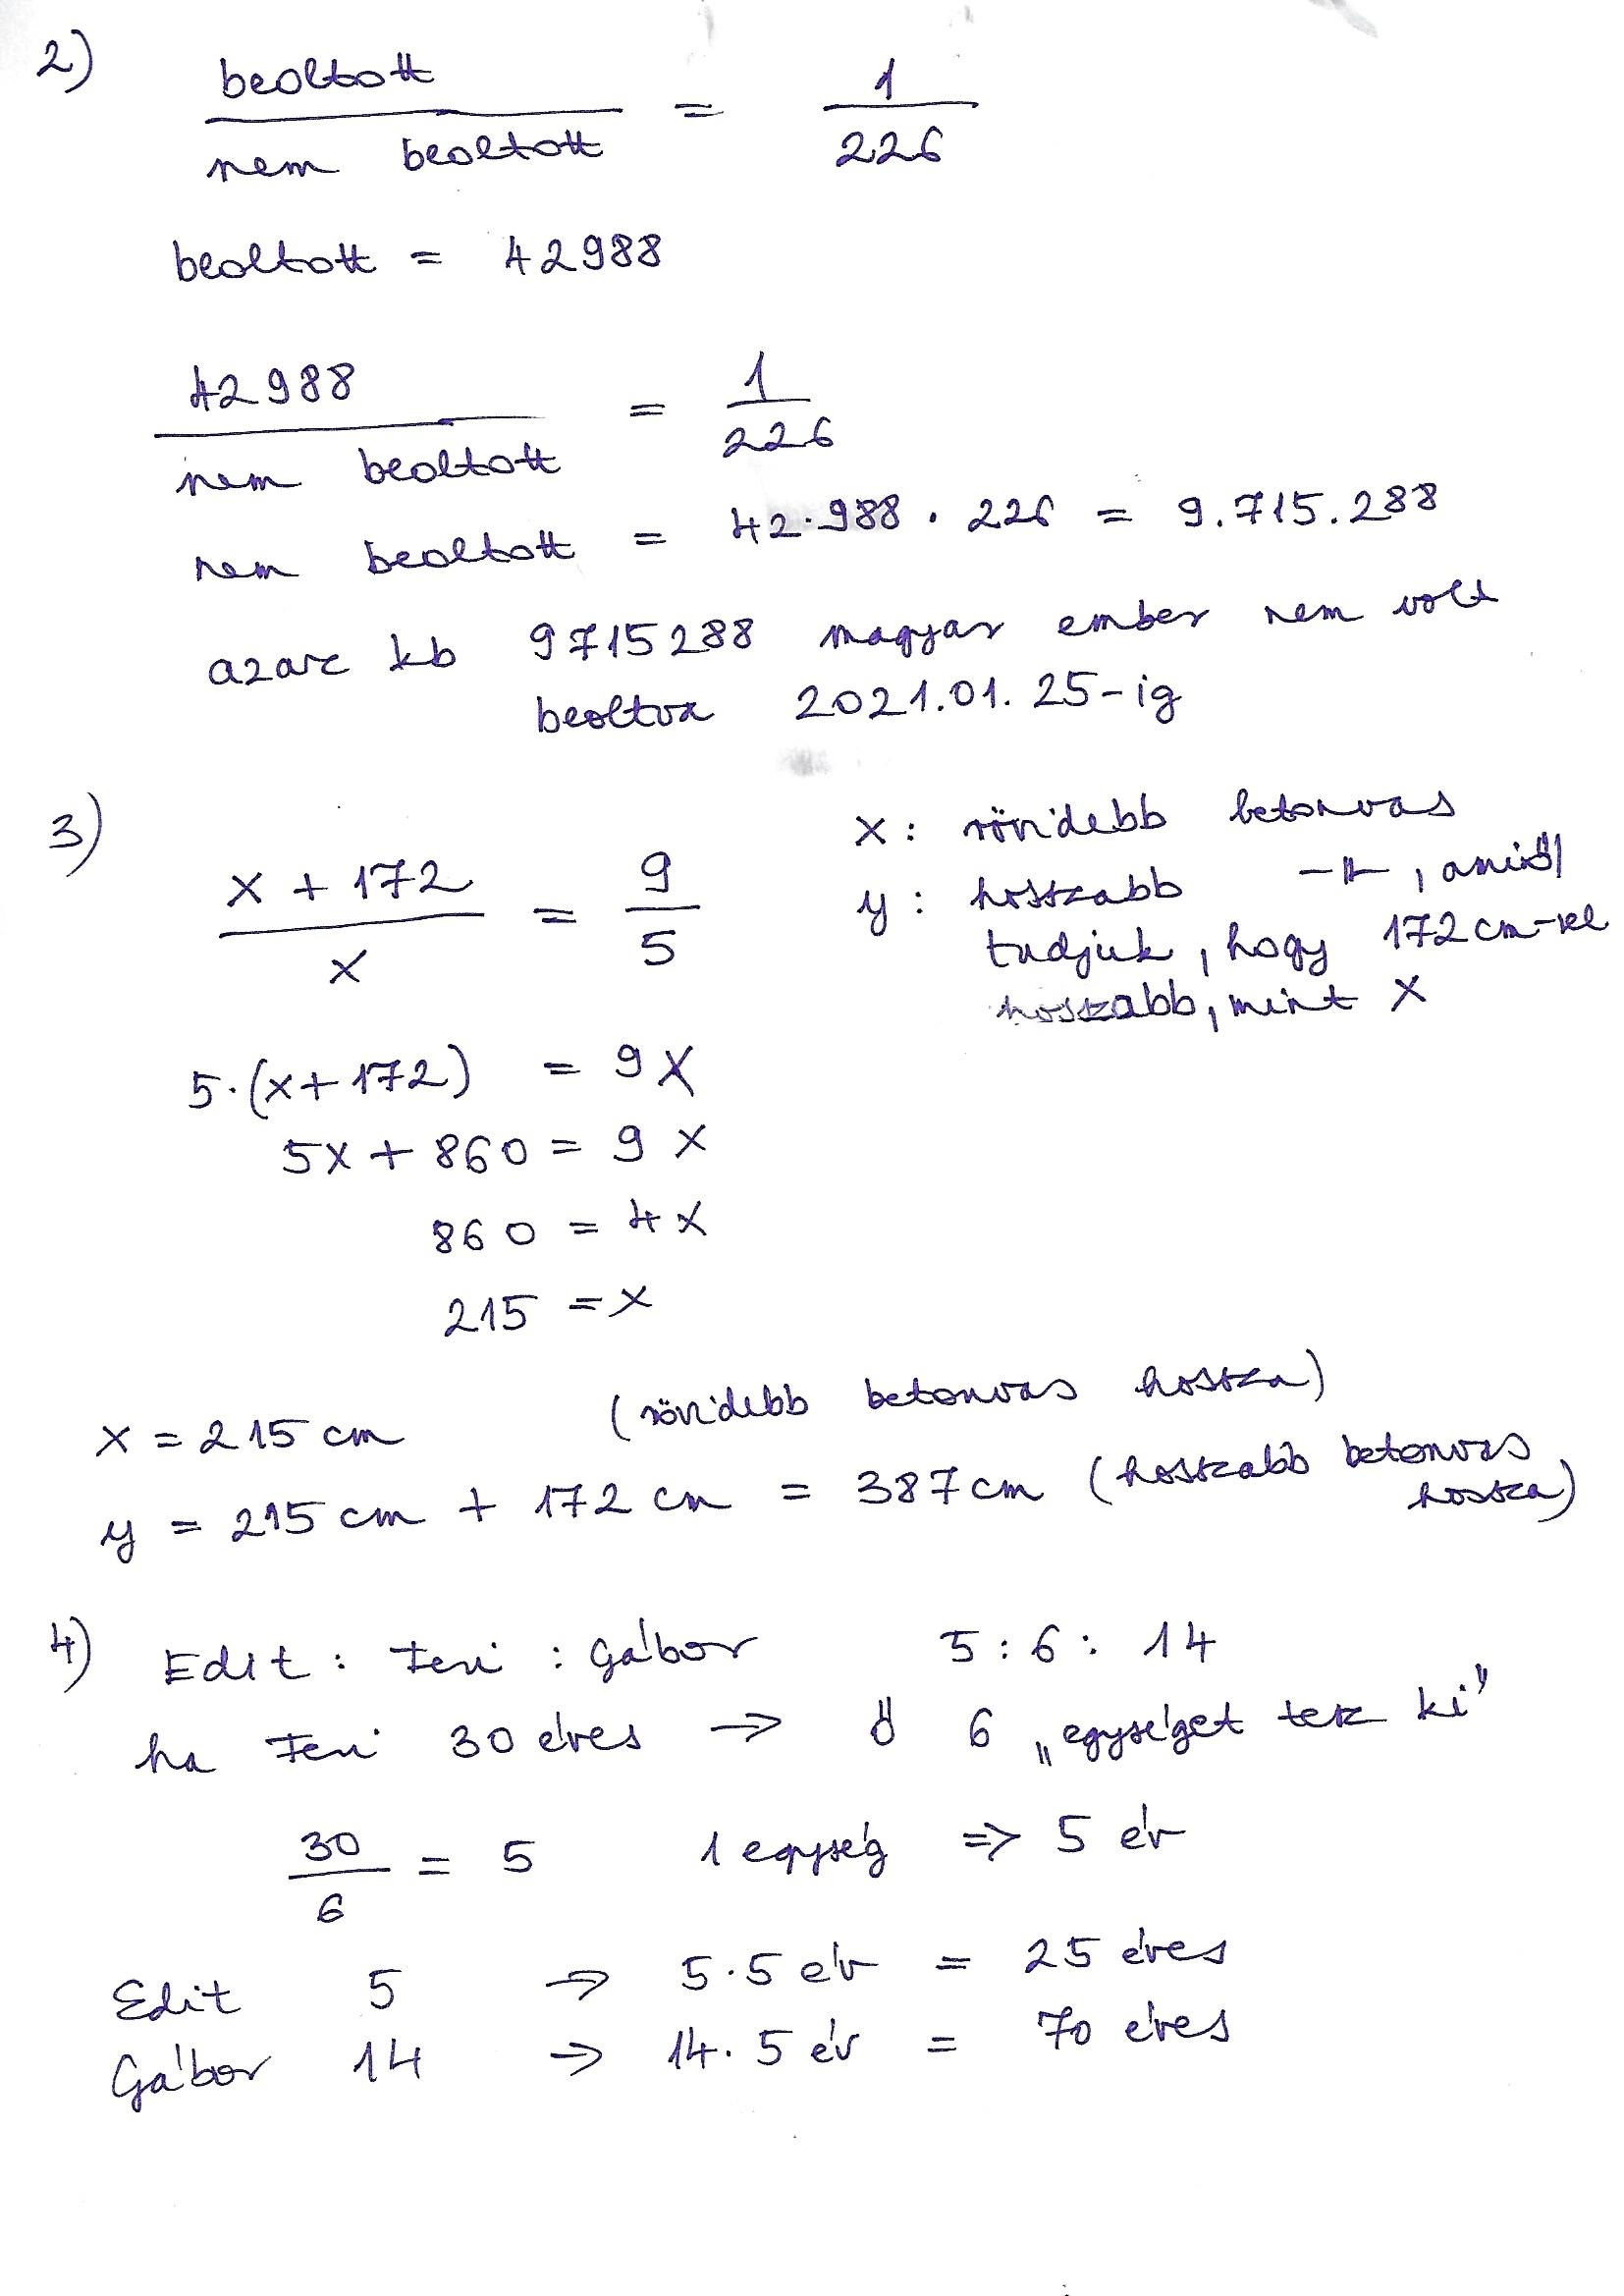 2)
beoltott / nem beoltott = 1 / 226
beoltott = 42988
42988 / nem beoltott = 1 / 226
nem beoltott = 42.988 · 226 = 9.715.288
azaz kb 9715288 magyar ember nem volt
beoltva 2021.01.25-ig
3)
x + 172 / x = 9 / 5
x: rövidebb betonvas
y: hosszabb -"-, amiről
tudjuk, hogy 172 cm-rel
hosszabb, mint x
5·(x+172) = 9x
5x + 860 = 9x
860 = 4x
215 = x
x = 215 cm (rövidebb betonvas hossza)
y = 215 cm + 172 cm = 387 cm (hosszabb betonvas
hossza)
4) Edit : Teri : Gábor 5 : 6 : 14
ha Teri 30 éves → ő 6 „egységet tesz ki”
30 / 6 = 5 1 egység ⇒ 5 év
Edit 5 → 5·5 év = 25 éves
Gábor 14 → 14·5 év = 70 éves